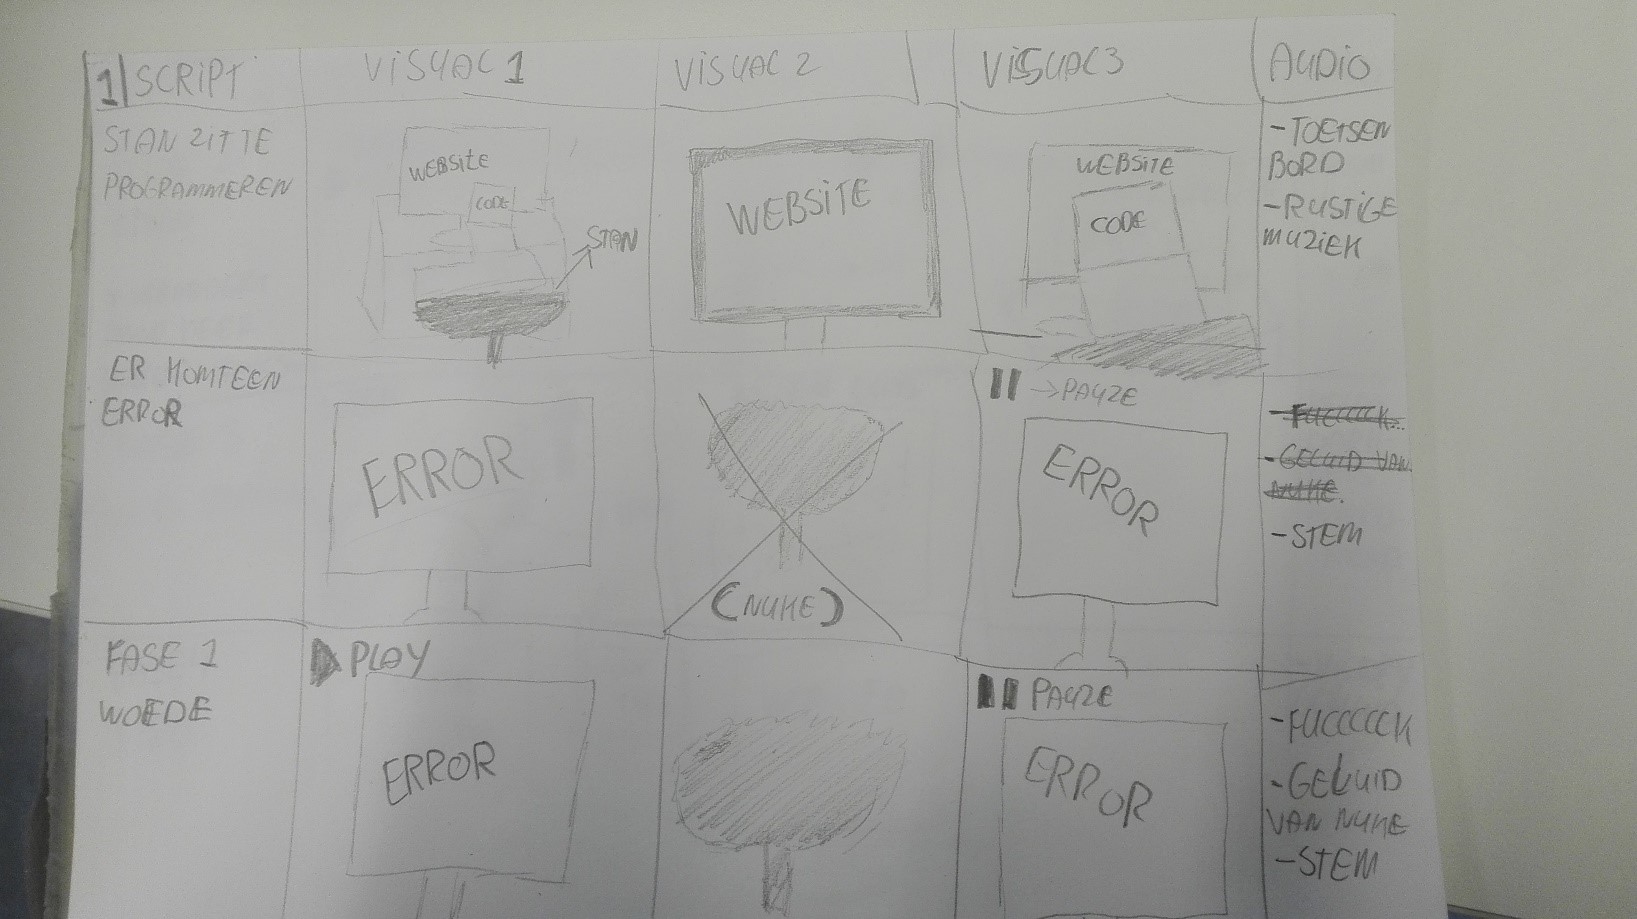 1 SCRIPT
VISUAL 1
VISUAL 2
VISUAL 3
AUDIO
STAN ZITTE
PROGRAMMEREN
WEBSITE
CODE
STAN
WEBSITE
WEBSITE
CODE
-TOETSEN
BORD
-RUSTIGE
MUZIEK
ER KOMT EEN
ERROR
ERROR
(NUKE)
→PAUZE
ERROR
-FUCCCCCK...
-GELUID VAN
NUKE.
-STEM
FASE 1
WOEDE
PLAY
ERROR
PAUZE
ERROR
-FUCCCCCK
-GELUID
VAN NUKE
-STEM